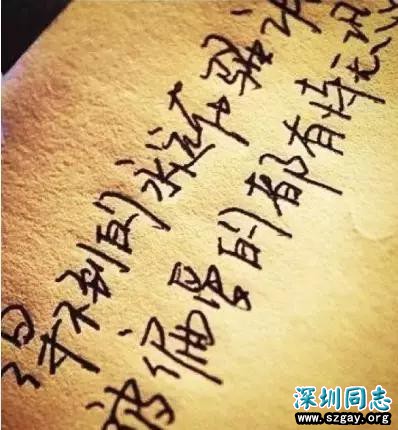 得不到的永远在骚动
被偏爱的都有恃无恐
深圳同志
www.szgay.org